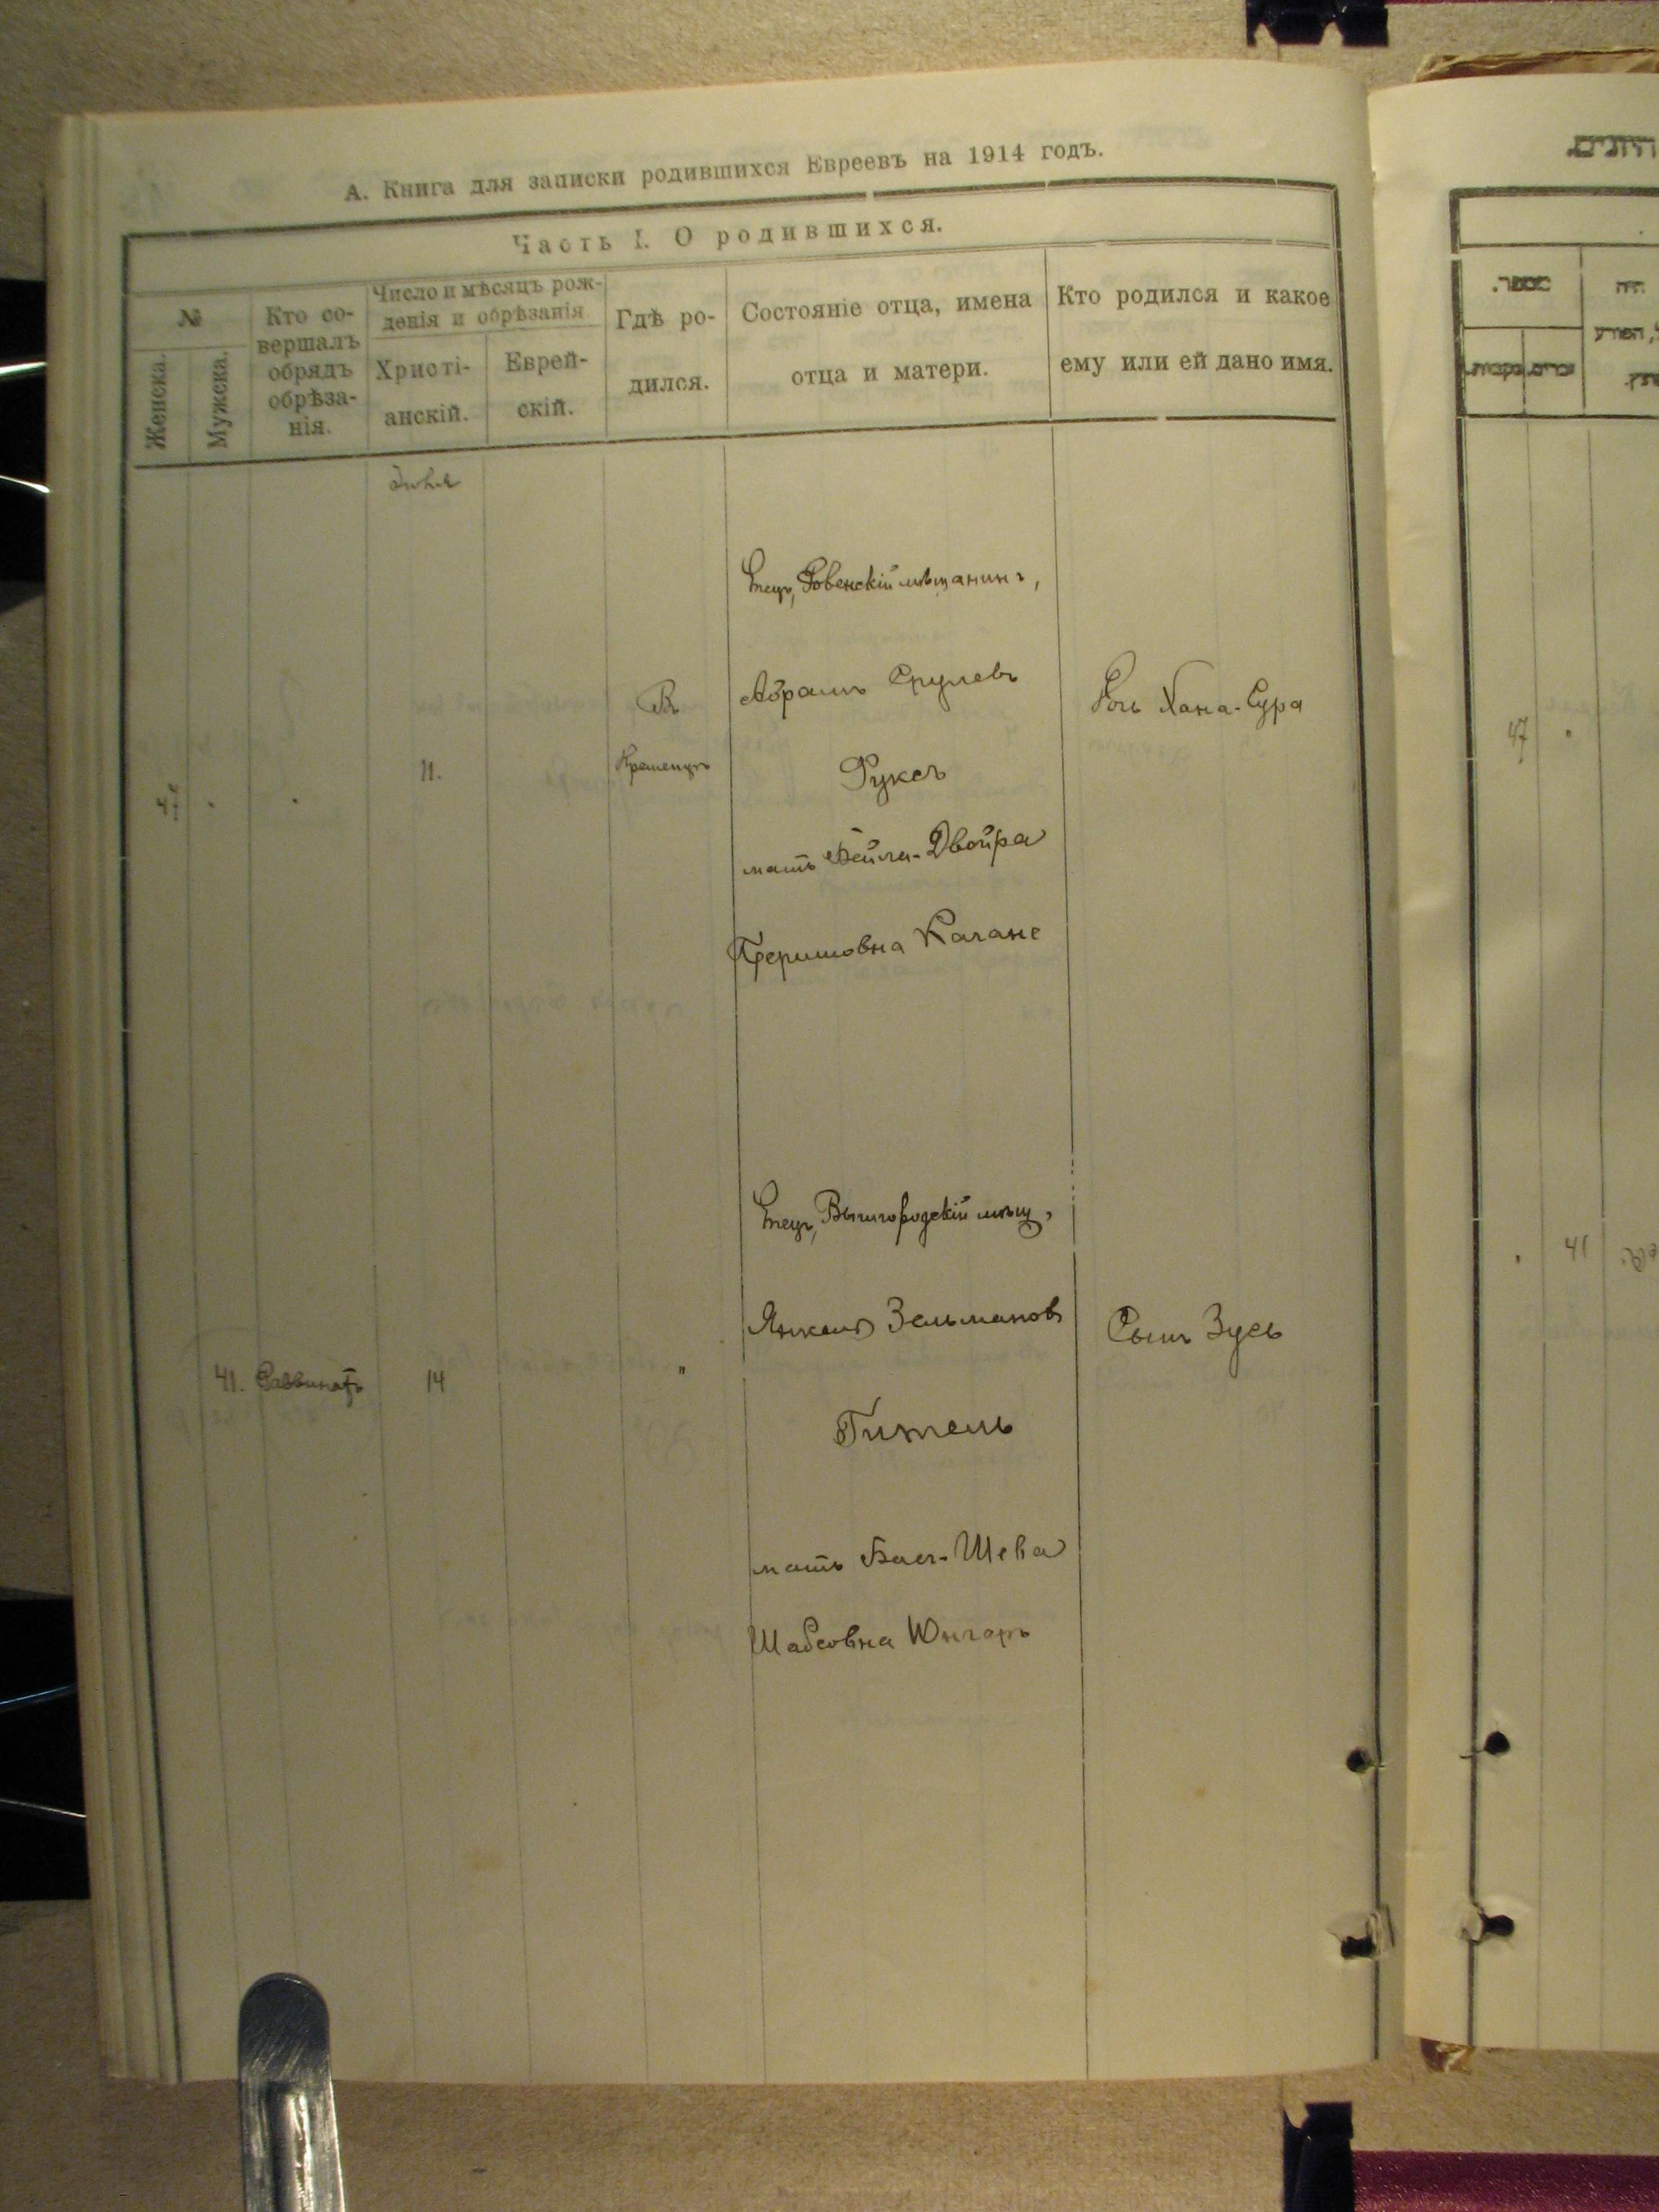 А. Книга для записки родившихся Евреевъ на 1914 годъ.
Часть I. О родившихся.
№
Женска.
Мужска.
Кто со-
вершалъ
обрядъ
обрѣза-
нія.
Число и мѣсяцъ рож-
денія и обрѣзанія
Христі-
анскій.
Еврей-
скій.
Гдѣ ро-
дился.
Состояніе отца, имена
отца и матери.
Кто родился и какое
ему или ей дано имя.
Отецъ, Ровенскій мѣщанинъ,
Абрамъ Срулевъ
Руксъ
мать Бейла-Двойра
Гершовна Кагане
47
11.
Въ
Кременцѣ
Дочь Хана-Сура
Отецъ, Вышгородскій мѣщ,
Янкель Зельмановъ
Гительь
мать Бася-Шева
Шабсовна Юнгаръ
41.
14
"
Сынъ Зусь
47
41